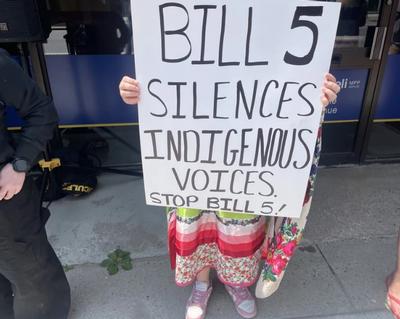 BILL 5
SILENCES
INDIGENOUS
VOICES.
STOP BILL 5!
MPP